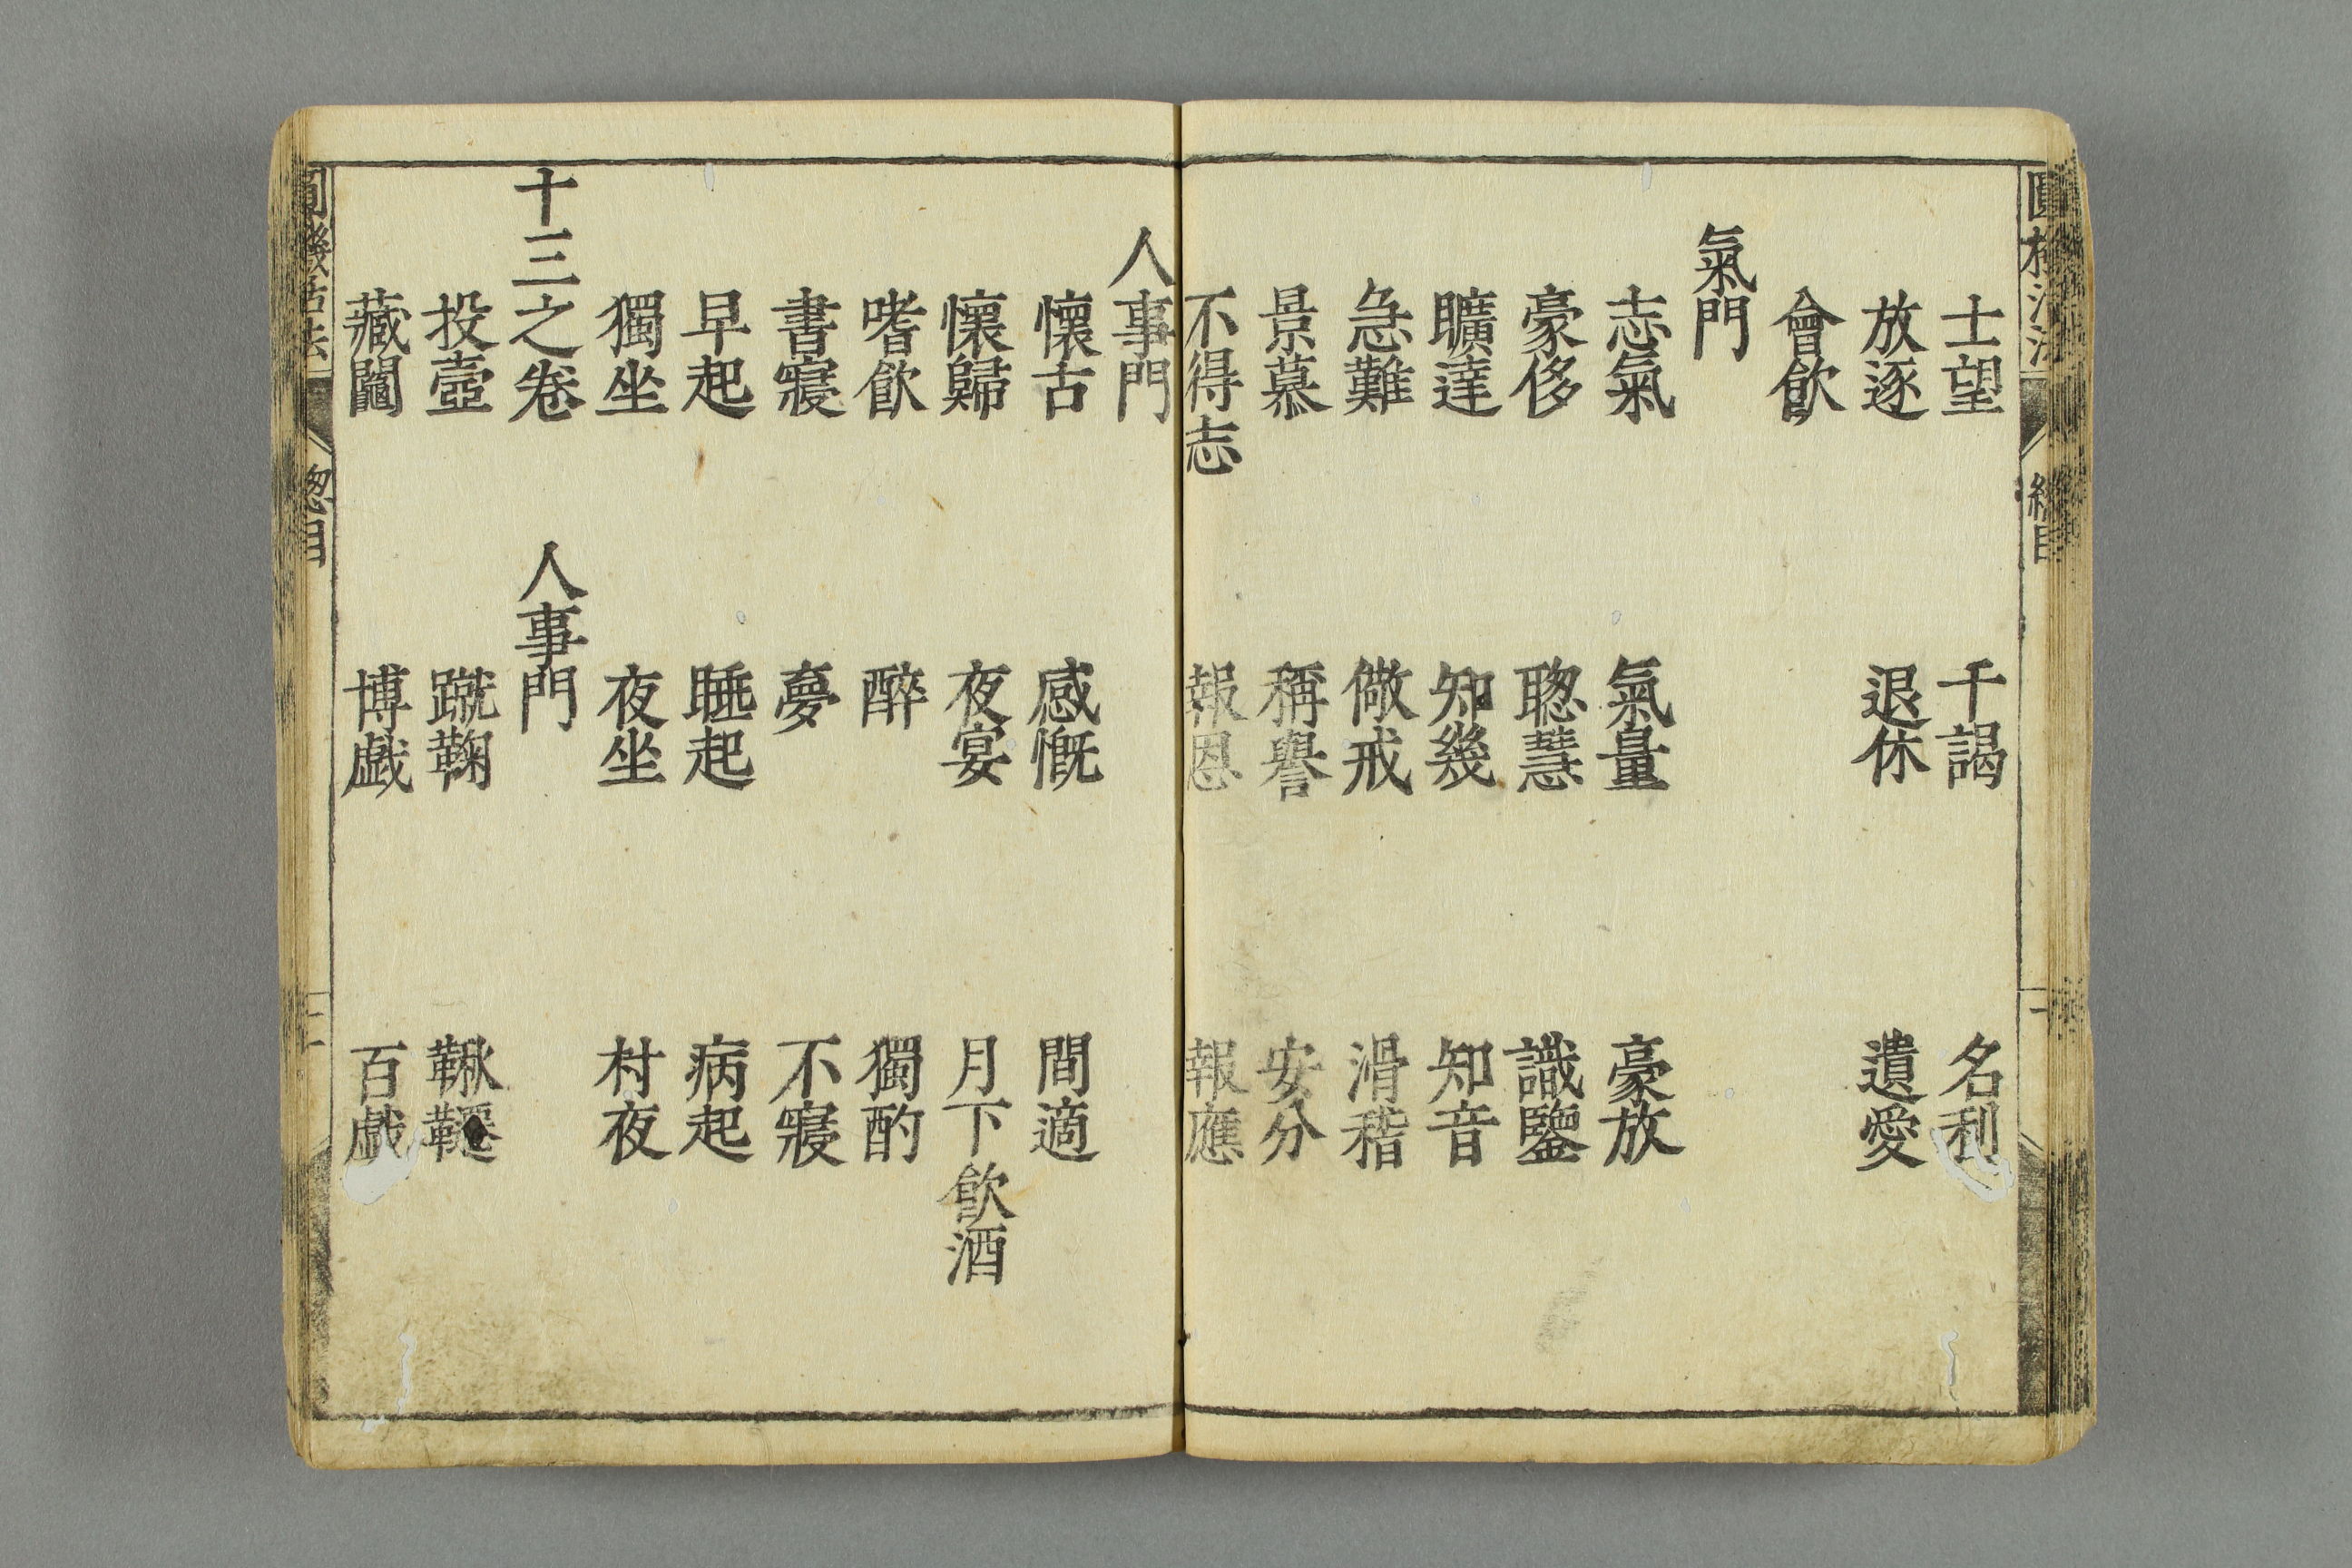 士望 千謁 名利
放逐 退休 遺愛
會飮
氣門
志氣 氣量 豪放
豪侈 聦慧 識鑒
曠達 知幾 知音
急難 儆戒 滑稽
景慕 稱譽 安分
不得志 報恩 報應
人事門
懷古 感慨 間適
懷歸 夜宴 月下飮酒
嗜飮 醉 獨酌
書寢 夣 不寢
早起 睡起 病起
獨坐 夜坐 村夜
十三之卷 人事門
投壺 蹴鞠 鞦韆
藏鬮 博戱 百戱
圓機活法 總目